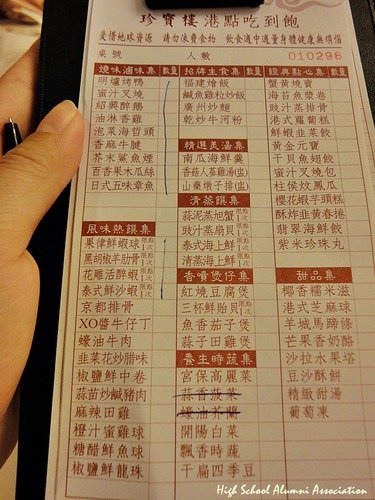 珍寶樓港點吃到飽
愛惜地球資源 請勿浪費食物 飲食適中適量身體健康無煩惱
桌號 人數 010296
燒味滷味集 數量
明爐烤鴨
蜜汁叉燒
紹興醉鵝
油淋香雞
泡菜海哲頭
香麻牛腱
芥末鯊魚煙
百香果木瓜絲
日式五味章魚
風味熱饌集
果律鮮蝦球 限點1次
黑胡椒羊肋骨 限點1次
花雕活醉蝦 限點1次
泰式鮮沙蝦 限點1次
京都排骨
XO醬牛仔丁
蠔油牛肉
韭菜花炒腊味
椒鹽鮮中卷
蒜苗炒鹹豬肉
麻辣田雞
橙汁蜜雞球
糖醋鮮魚球
椒鹽鮮龍珠
招牌主食集 數量
福建燴飯
鹹魚雞粒炒飯
廣州炒麵
乾炒牛河粉
精選美湯集
南瓜海鮮羹
香菇人蔘雞湯(出)
山藥燉子排(出)
清蒸饌集
蒜泥蒸旭蟹 限點1次
豉汁蒸扇貝 限點1次
泰式海上鮮 限點1次
清蒸海上鮮 限點1次
香噴煲仔集
紅燒豆腐煲
三杯魷貽貝 限點1次
魚香茄子煲
蒜子田雞煲
養生時蔬集
宮保高麗菜
蒜香菠菜
蠔油芥蘭
開陽白菜
飄香時蔬
干扁四季豆
經典點心集 數量
蟹黃燒賣
海苔魚漿卷
豉汁蒸排骨
港式蘿蔔糕
鮮蝦韭菜餃
黃金元寶
干貝魚翅餃
蜜汁叉燒包
柱侯炆鳳瓜
櫻花蝦芋頭糕
酥炸韭黃春捲
翡翠海鮮餃
紫米珍珠丸
甜品集
椰香糯米滋
港式芝麻球
羊城馬蹄條
芒果香奶酪
沙拉水果塔
豆沙酥餅
精緻甜湯
葡萄凍
High School Alumni Association